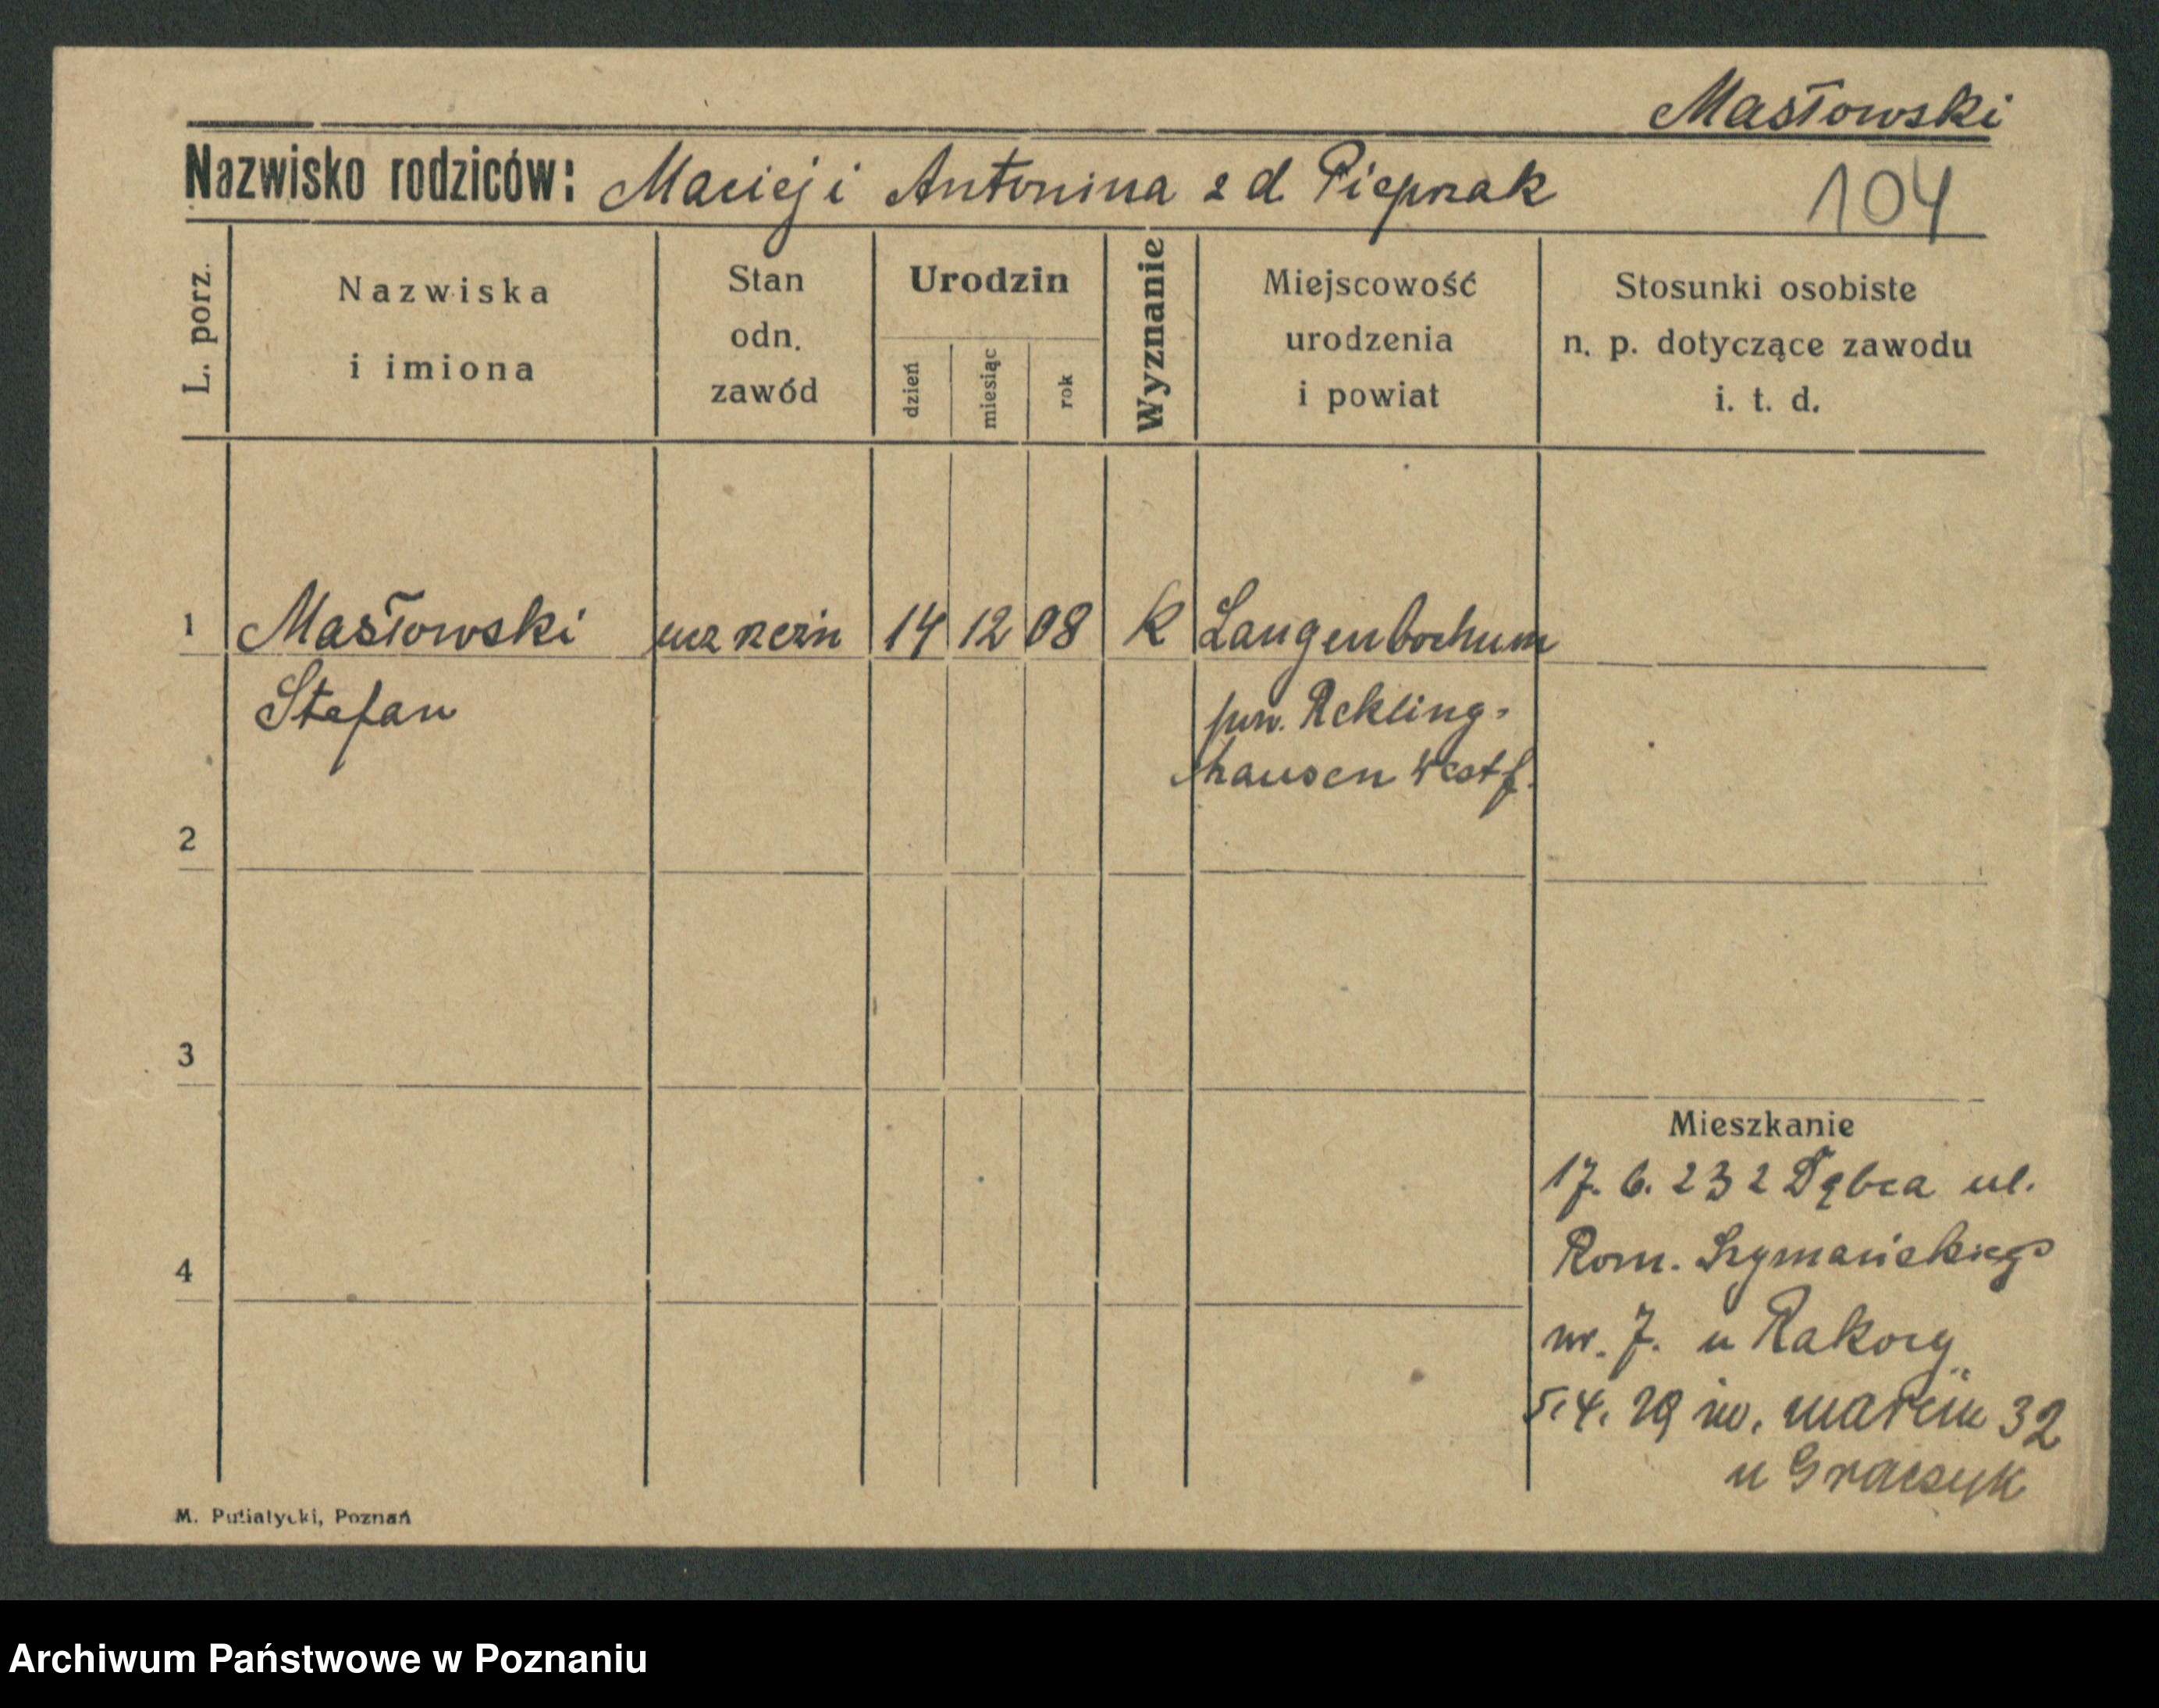 Masłowski
Nazwisko rodziców: Maciej i Antonina z d Pieprzak
104
L. porz.
Nazwiska
i imiona
Stan
odn.
zawód
Urodzin
dzień
miesiąc
rok
Wyznanie
Miejscowość
urodzenia
i powiat
Stosunki osobiste
n. p. dotyczące zawodu
i. t. d.
1 Masłowski ucz rzeźn 14 12 08 K Langenbochum
Stefan pow. Rekling-
hausen Westf.
2
3
4
Mieszkanie
17. 6. 23 z Dębca ul.
Rom. Szymańskiego
nr. 7. u Rakocy
5.4. 29 św. marcin 32
u Graczyk
M. Putiatycki, Poznań
Archiwum Państwowe w Poznaniu